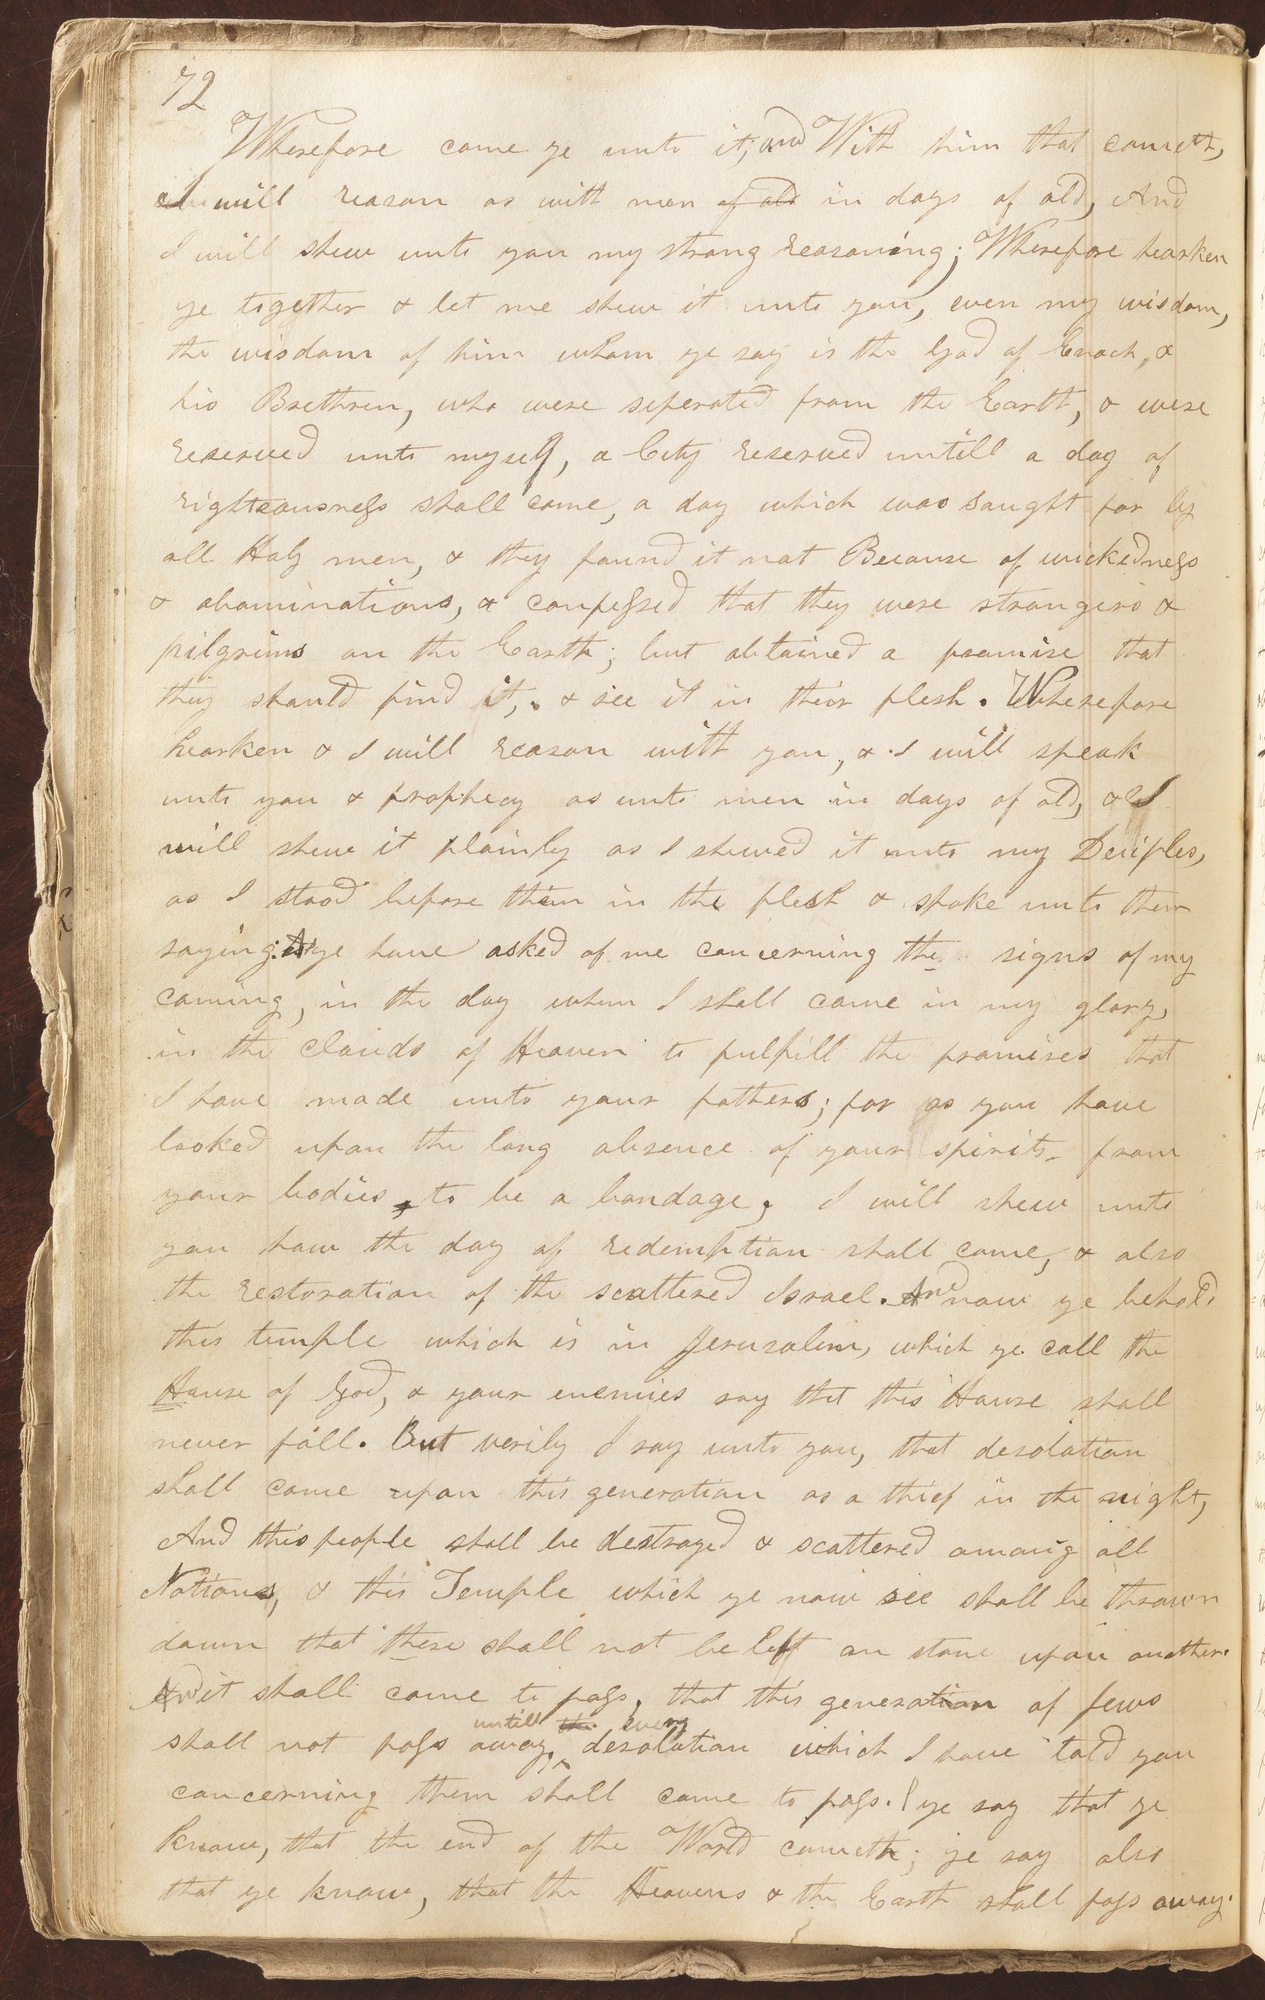 72
Wherefore come ye unto it, and With him that cometh,
I will reason as with men of old in days of old, And
I will shew unto you my strong reasoning; Wherefore hearken
ye together & let me shew it unto you, even my wisdom,
the wisdom of him whom ye say is the God of Enoch, &
his Brethren, who were seperated from the Earth, & were
reserved unto myself, a City reserved untill a day of
righteousness shall come, a day which was saught for by
all Holy men, & they found it not Because of wickedness
& abominations, & confessed that they were strangers &
pilgrims on the Earth; but obtained a promise that
they should find it, & see it in their flesh. Wherefore
hearken & I will reason with you, & I will speak
unto you & prophecy as unto men in days of old, & I
will shew it plainly as I shewed it unto my Deciples,
as I stood before them in the flesh & spoke unto them
saying: As ye have asked of me concerning the signs of my
coming, in the day when I shall come in my glory,
in the Clouds of Heaven to fulfill the promises that
I have made unto your fathers; for as you have
looked upon the long absence of your spirits from
your bodies, to be a bondage, I will shew unto
you how the day of redemption shall come, & also
the restoration of the scattered Israel. And now ye behold
this temple which is in Jerusalem, which ye call the
House of God, & your enemies say that this House shall
never fall. But verily I say unto you, that desolation
shall come upon this generation as a thief in the night,
And this people shall be destroyed & scattered among all
Nations, & this Temple which ye now see shall be thrown
down that there shall not be left on stone upon another.
And it shall come to pass, that this generation of Jews
shall not pass away, untill the every desolation which I have told you
concerning them shall come to pass. ye say that ye
know, that the end of the World cometh; ye say also
that ye know, that the Heavens & the Earth shall pass away.